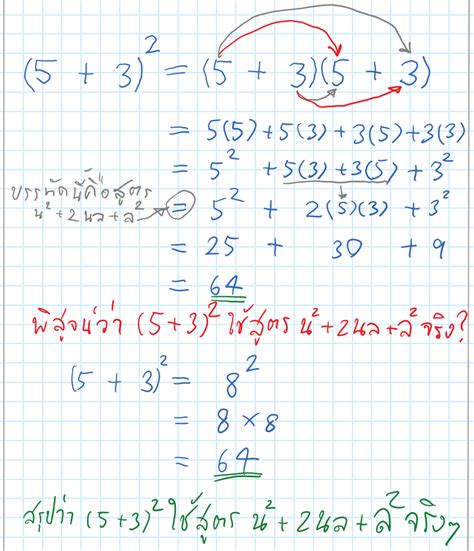 (5 + 3)² = (5 + 3)(5 + 3)
= 5(5) + 5(3) + 3(5) + 3(3)
= 5² + 5(3) + 3(5) + 3²
บรรทัดนี้คือสูตร
น² + 2นล + ล²
= 5² + 2(5)(3) + 3²
= 25 + 30 + 9
= 64
พิสูจน์ว่า (5+3)² ใช้สูตร น² + 2นล + ล² จริง?
(5 + 3)² = 8²
= 8 × 8
= 64
สรุปว่า (5+3)² ใช้สูตร น² + 2นล + ล² จริงๆ